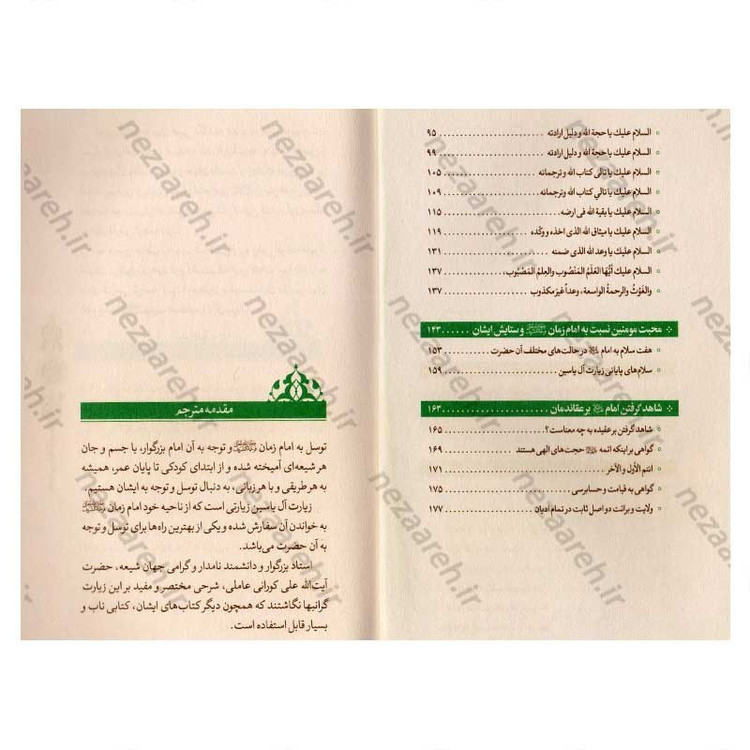 السلام علیك یا حجة الله و دلیل ارادته ..................... ۹۵
السلام علیك یا حجة الله و دلیل ارادته ..................... ۹۹
السلام علیك یا تالی کتاب الله و ترجمانه ..................... ۱۰۵
السلام علیك یا تالي کتاب الله وترجمانه ..................... ۱۰۹
السلام علیك یا بقیة الله فی ارضه ..................... ۱۱۵
السلام علیك یا میثاق الله الذی اخذه و وکّده ..................... ۱۱۹
السلام علیك یا وعد الله الذی ضمنه ..................... ۱۳۱
السلام علیك أیُّها العَلَمُ المَنْصُوب والعِلمُ المَصْبُوب، ..................... ۱۳۷
والغَوْثُ والرحمةُ الواسعة، وعداً غیرَ مَکذوب ..................... ۱۳۷
محبت مومنین نسبت به امام زمان و ستایش ایشان ...... ۱۴۳
هفت سلام به امام در حالت‌های مختلف آن حضرت ............ ۱۵۳
سلام‌های پایانی زیارت آل یاسین ..................... ۱۵۹
شاهد گرفتن امام بر عقائدمان ..................... ۱۶۳
شاهد گرفتن بر عقیده به چه معناست؟ ..................... ۱۶۵
گواهی بر اینکه ائمه حجت‌های الهی هستند ............ ۱۶۹
انتم الأول و الآخر ..................... ۱۷۱
گواهی به قیامت و حسابرسی ..................... ۱۷۵
ولایت و برائت دو اصل ثابت در تمام ادیان ..................... ۱۷۷
مقدمه مترجم
توسل به امام زمان و توجه به آن امام بزرگوار، با جسم و جان
هر شیعه‌ای آمیخته شده و از ابتدای کودکی تا پایان عمر، همیشه
به هر طریقی و با هر زبانی، به دنبال توسل و توجه به ایشان هستیم.
زیارت آل یاسین زیارتی است که از ناحیه خود امام زمان
به خواندن آن سفارش شده و یکی از بهترین راه‌ها برای توسل و توجه
به آن حضرت می‌باشد.
استاد بزرگوار و دانشمند نامدار و گرامی جهان شیعه، حضرت
آیت‌الله علی کورانی عاملی، شرحی مختصر و مفید بر این زیارت
گرانبها نگاشتند که همچون دیگر کتاب‌های ایشان، کتابی ناب و
بسیار قابل استفاده است.
nezaareh.ir